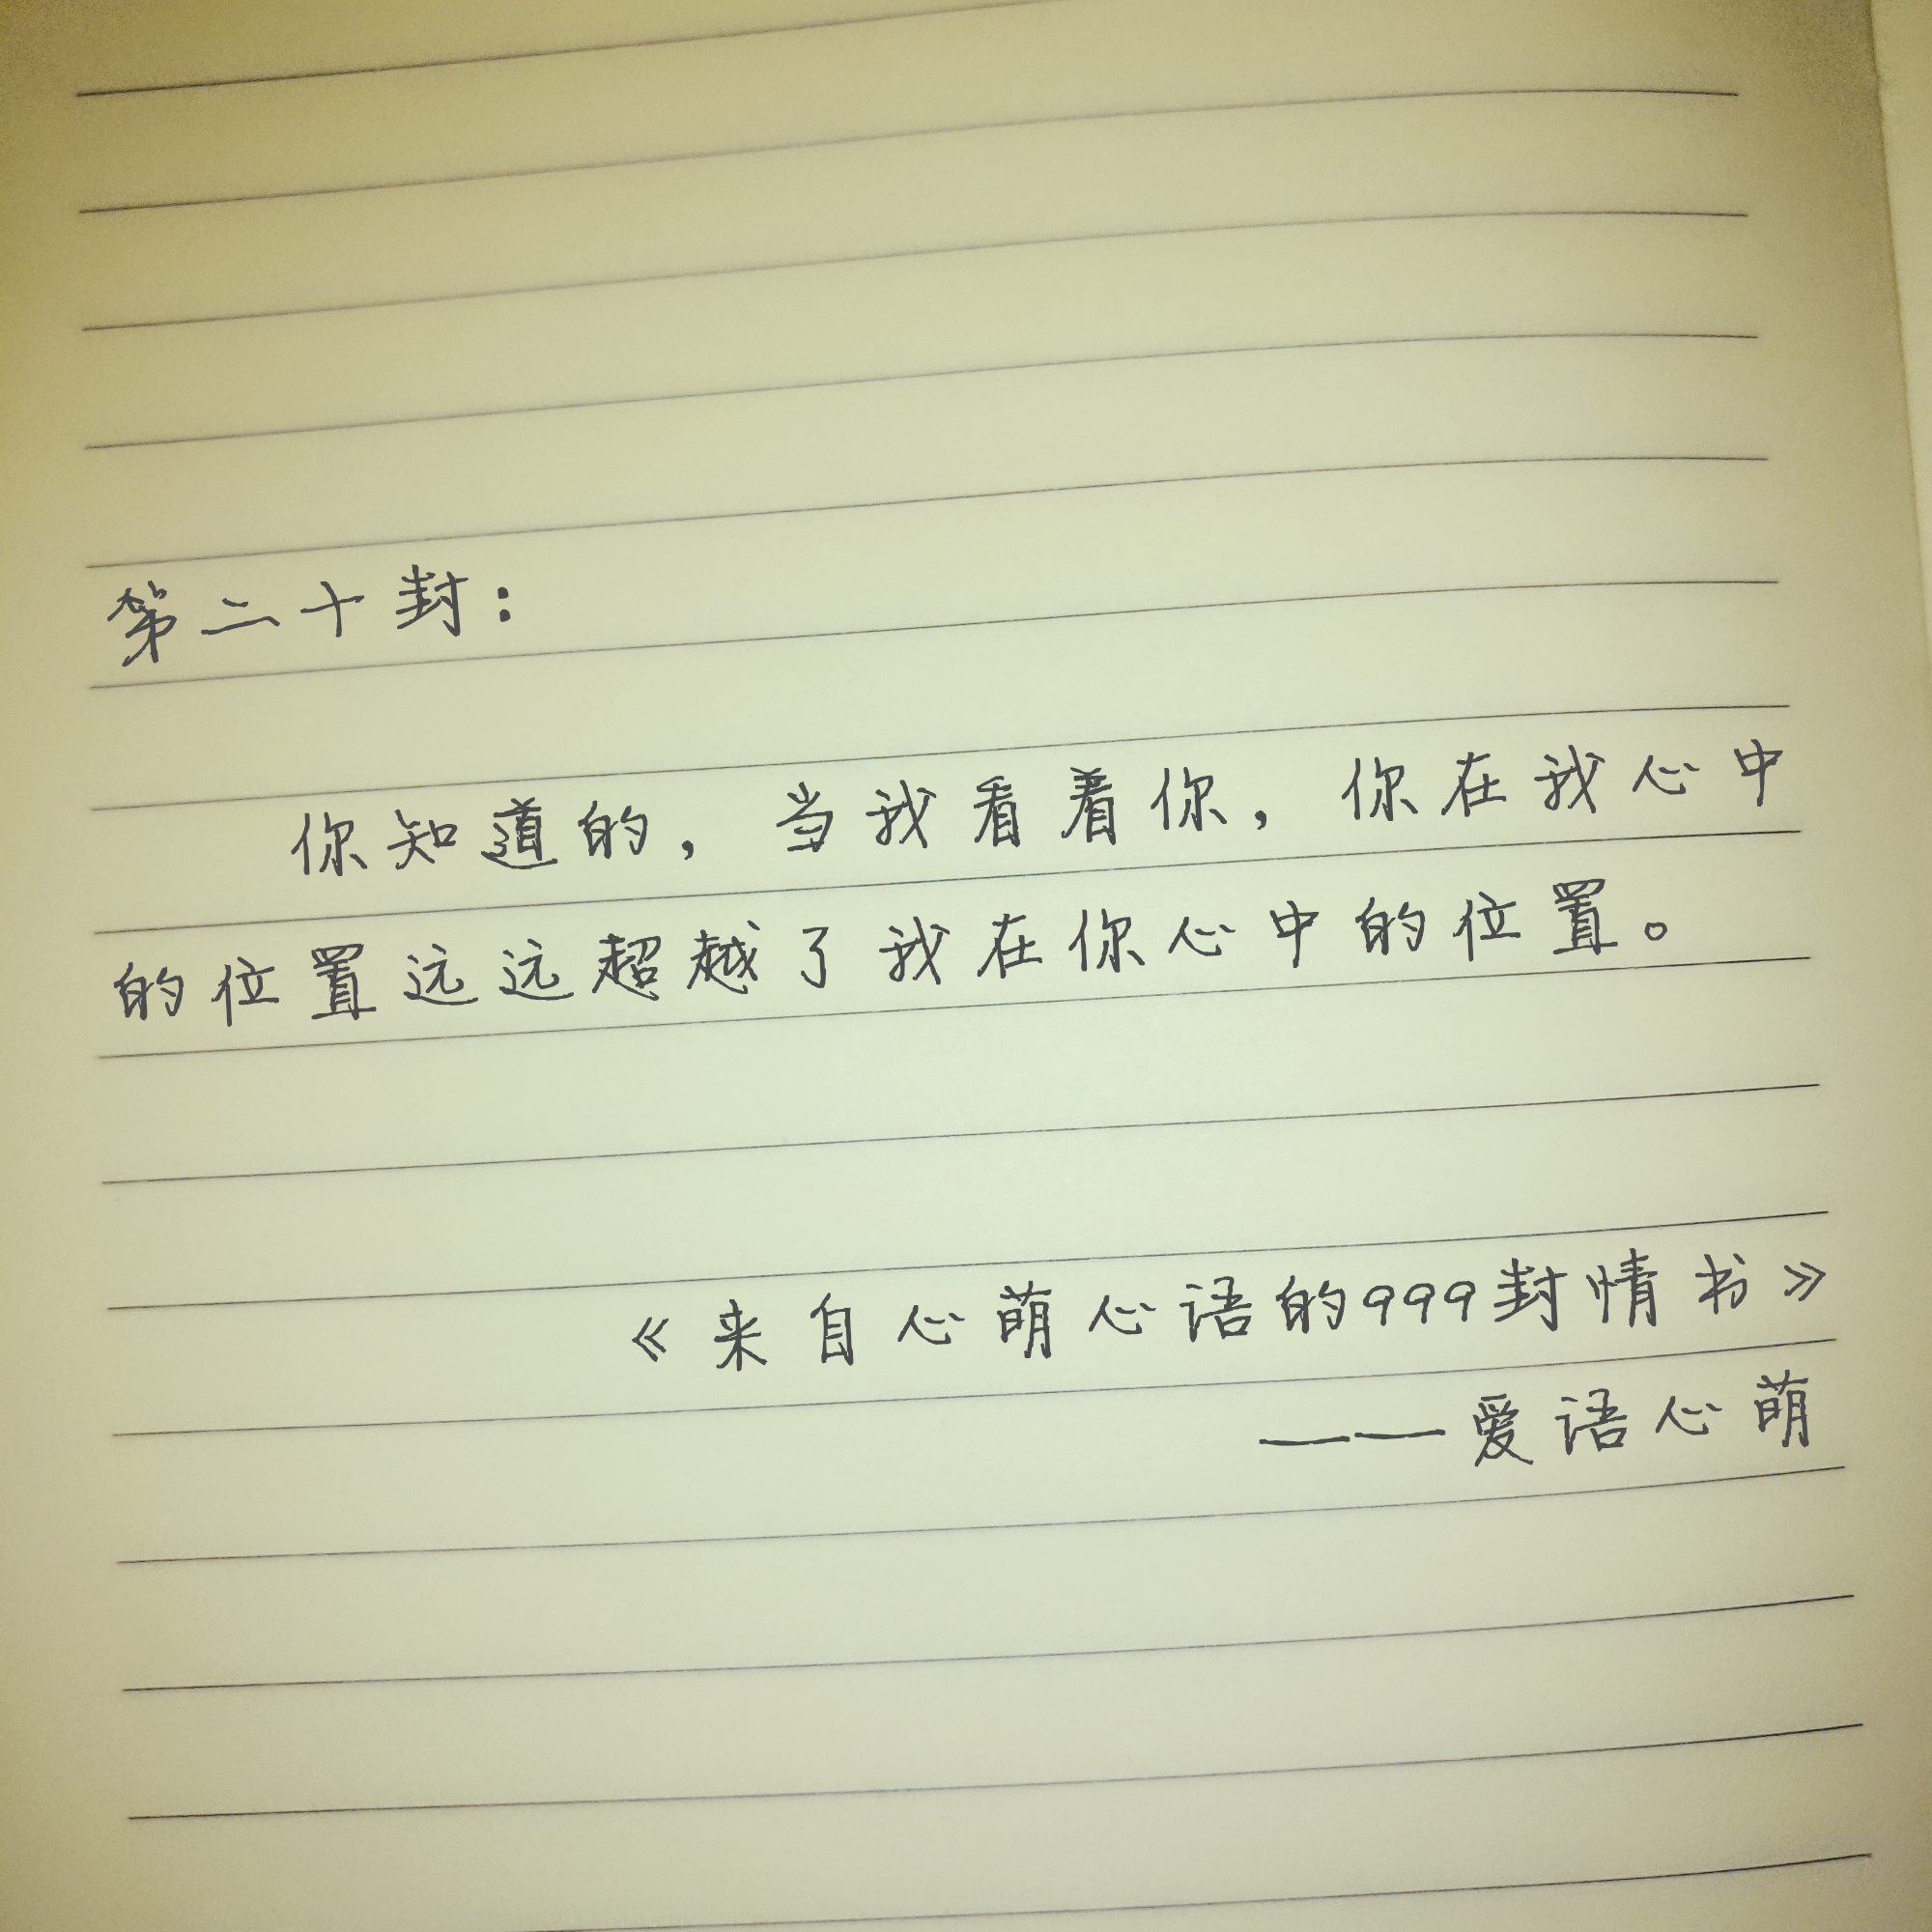 第二十封：
你知道的，当我看着你，你在我心中
的位置远远超越了我在你心中的位置。
《来自心萌心语的999封情书》
——爱语心萌